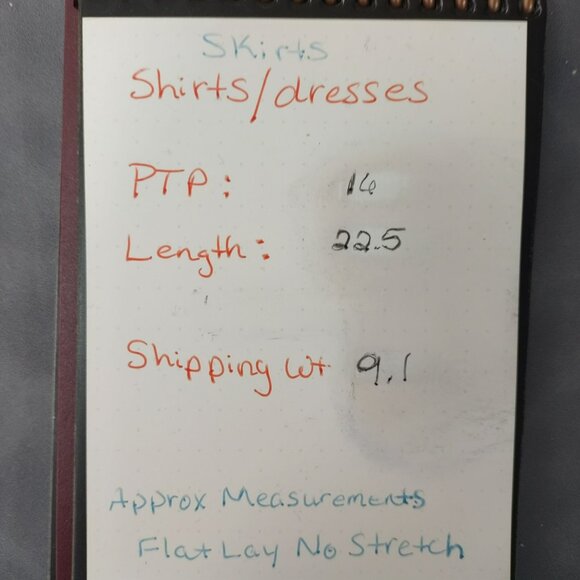 Skirts
Shirts/dresses
PTP: 16
Length: 22.5
Shipping Wt 9.1
Approx Measurements
Flat Lay No Stretch